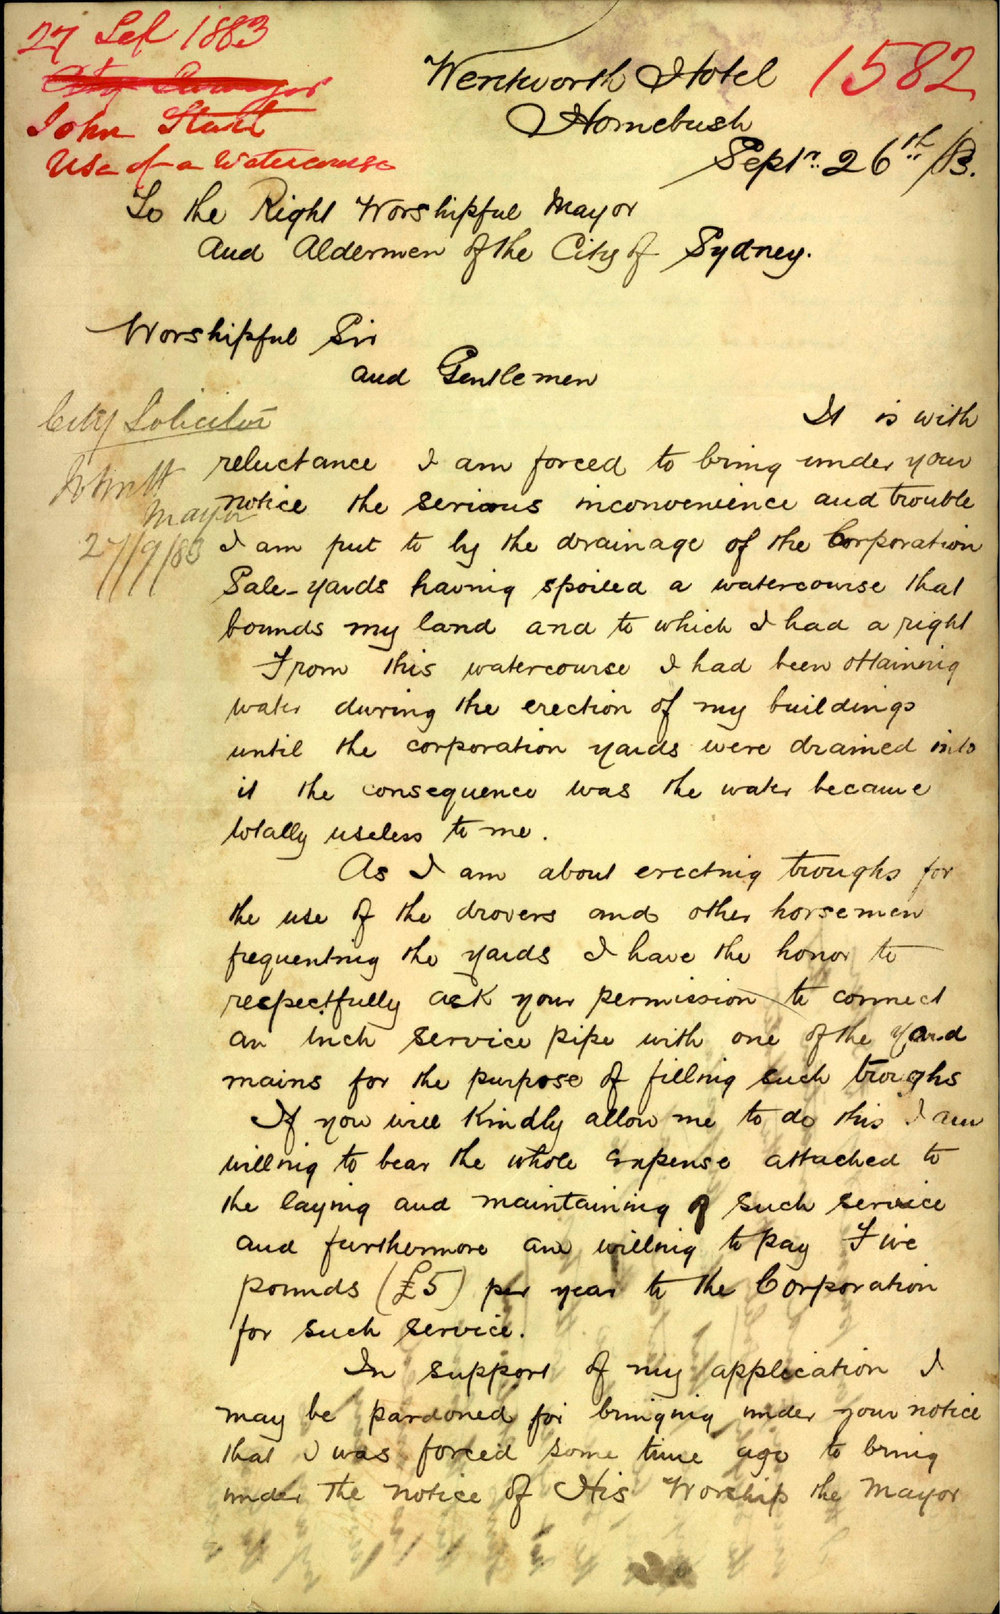 27 Sep 1883
City Surveyor
John Start
Use of a Watercourse
1582
Wentworth Hotel
Homebush
Septr. 26th /83.
To the Right Worshipful Mayor
and Aldermen of the City of Sydney.
Worshipful Sir
and Gentlemen
City Solicitor
Mayor
27/9/83
It is with
reluctance I am forced to bring under your
notice the serious inconvenience and trouble
I am put to by the drainage of the Corporation
Sale-yards having spoiled a watercourse that
bounds my land and to which I had a right
From this watercourse I had been obtaining
water during the erection of my buildings
until the corporation yards were drained into
it the consequence was the water became
totally useless to me.
As I am about erecting troughs for
the use of the drovers and other horsemen
frequenting the yards I have the honor to
respectfully ask your permission to connect
an inch service pipe with one of the yard
mains for the purpose of filling such troughs
If you will kindly allow me to do this I am
willing to bear the whole expense attached to
the laying and maintaining of such service
and furthermore am willing to pay Five
pounds (£5) per year to the Corporation
for such service.
In support of my application I
may be pardoned for bringing under your notice
that I was forced some time ago to bring
under the notice of His Worship the Mayor